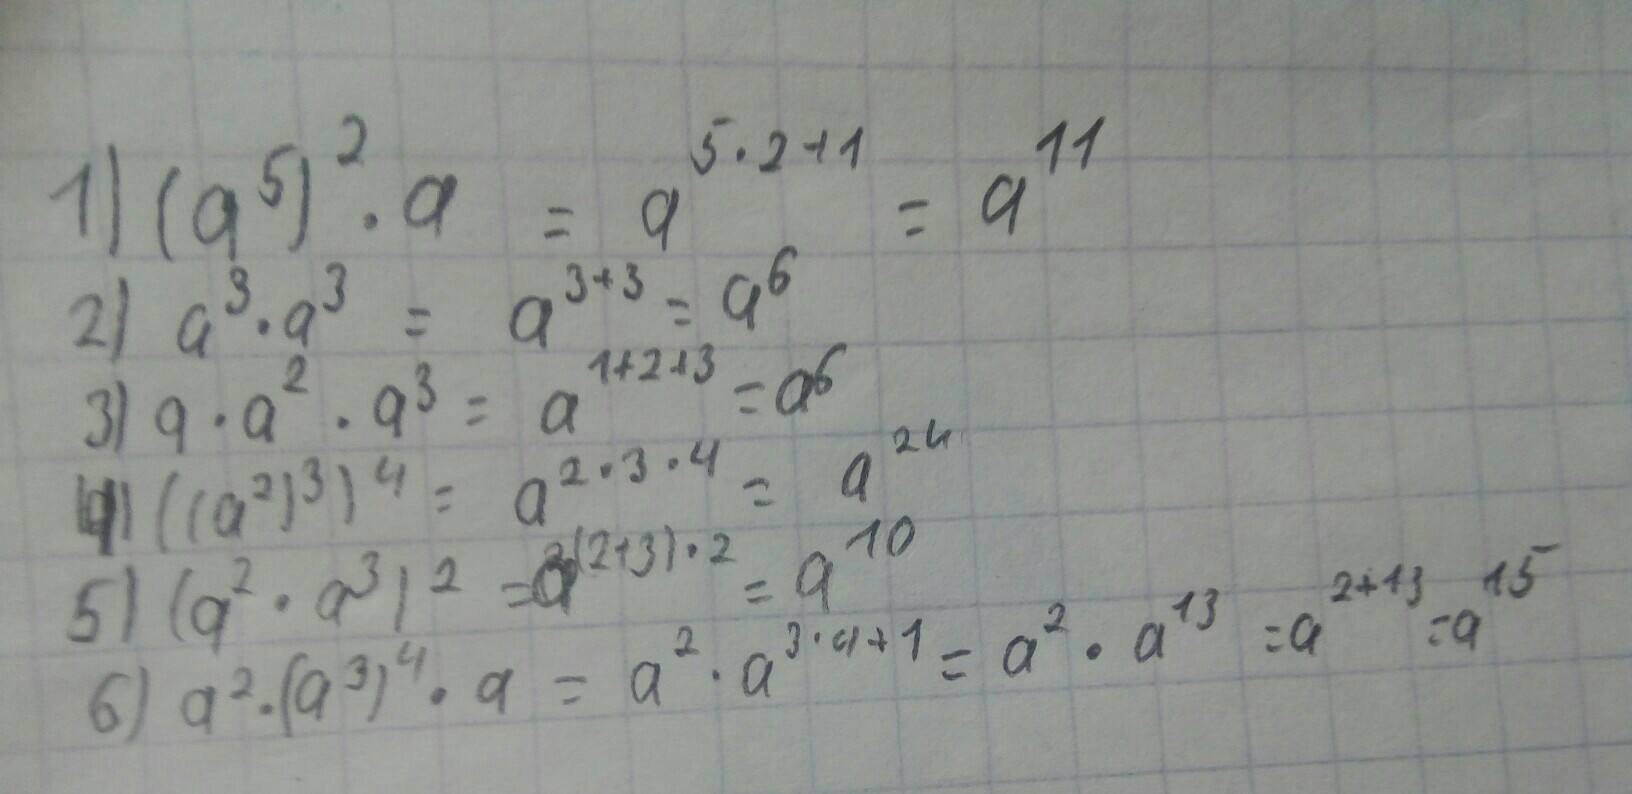 1) (a⁵)² · a = a⁵·²⁺¹ = a¹¹
2) a³ · a³ = a³⁺³ = a⁶
3) a · a² · a³ = a¹⁺²⁺³ = a⁶
4) ((a²)³)⁴ = a²·³·⁴ = a²⁴
5) (a² · a³)² = a⁽²⁺³⁾·² = a¹⁰
6) a² · (a³)⁴ · a = a² · a³·⁴⁺¹ = a² · a¹³ = a²⁺¹³ = a¹⁵